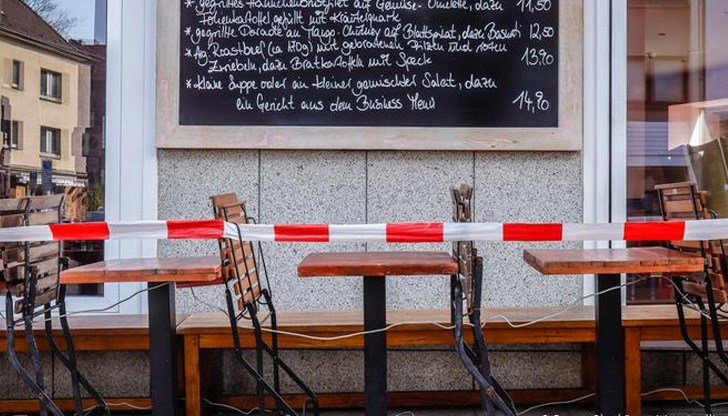 * gegrilltes Hähnchenbrustfilet auf Gemüse-Omelette, dazu 11,50
Folienkartoffel gefüllt mit Kräuterquark
* gegrillte Dorade an Mango-Chutney auf Blattspinat, dazu Basmati 12,50
* Arg. Roastbeef (ca 180g) mit gebratenen Pilzen und roten 13,90
Zwiebeln, dazu Bratkartoffeln mit Speck
* kleine Suppe oder ein kleiner gemischter Salat, dazu
ein Gericht aus dem Business Menü 14,90